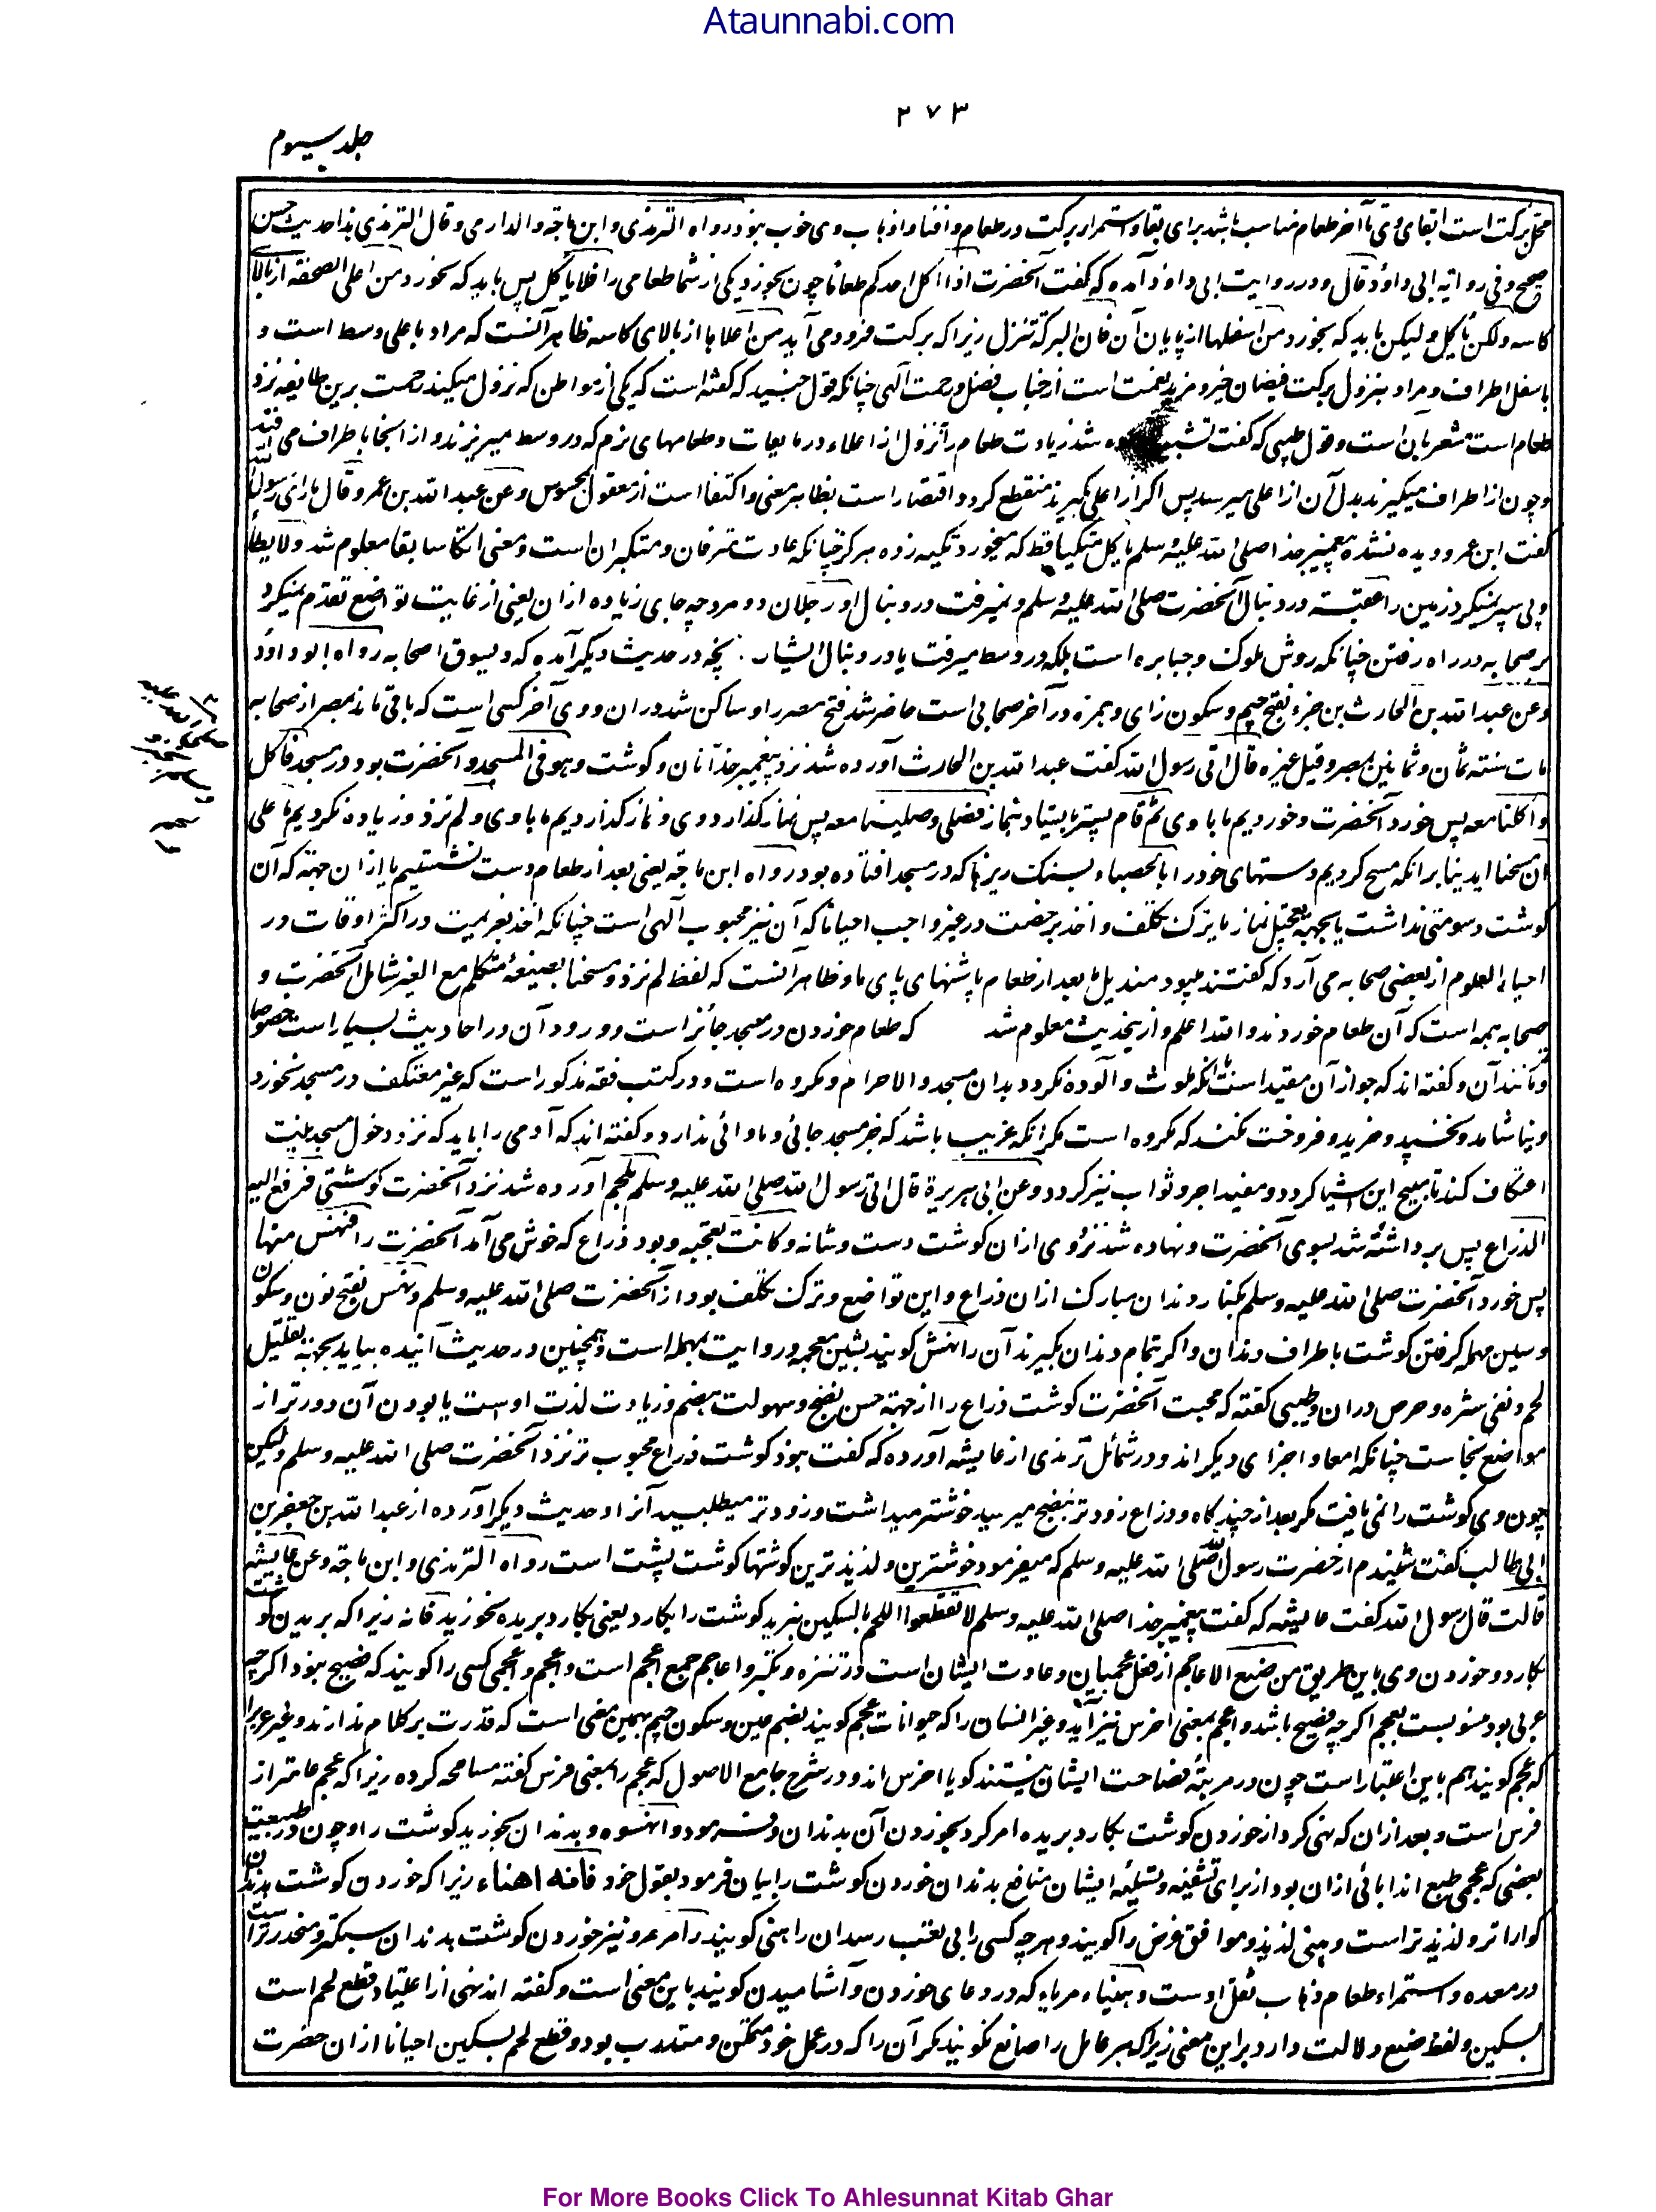 Ataunnabi.com
۲۷۳
جلد سیوم
محل برکت است ابقای وی تا آخر طعام مناسب باشد برای بقا و استمرار برکت در طعام و افنا و اذهاب وی خوب نبود رواه الترمذی و ابن ماجة والدارمی وقال الترمذی هذا حدیث حسن
صحیح وفی روایة ابی داؤد قال و در روایت ابی داؤد آمده که گفت آنحضرت اذا اکل احدکم طعاما چون بخورد یکی از شما طعامی را فلا یاکل پس باید که نخورد من اعلی الصحفة از بالای
کاسه ولکن یاکل و لیکن باید که بخورد من اسفلها از پایان آن فان البرکة تنزل زیرا که برکت فرود می آید من اعلاها از بالای کاسه ظاهر آنست که مراد باعلی وسط است و
باسفل اطراف و مراد بنزول برکت فیضان خیر و مزید نعمت است از جناب فضل و رحمت آلهی چنانکه قول جنید که گفته است که یکی از مواطن که نزول میکند رحمت برین طایفه نزد
طعام است مشعر بآن است و قول طیبی که گفت تشبیه شد زیادت طعام را بنزول از اعلاء در مایعات و طعامهای نرم که در وسط میریزند و از آنجا باطراف می افتد
و چون از اطراف میگیرند بدل آن از اعلی میرسد پس اگر از اعلی گیرند منقطع گردد اقتصار است بظاهر معنی و اکتفا است از معقول بمحسوس وعن عبد الله بن عمرو قال ما رای رسول الله
گفت ابن عمرو دیده نشده پیغمبر خدا صلی الله علیه وسلم یاکل متکئا قط که میخورد تکیه زده هرگز چنانکه عادت مترفان و متکبران است و معنی اتکا سابقا معلوم شد ولا یطأ
و پی سپر نمیکرد زمین را عقبه در دنبال آنحضرت صلی الله علیه وسلم و نمیرفت در دنبال او رجلان دو مرد چه جای زیاده ازان یعنی از غایت تواضع تقدم نمیکرد
بر صحابه در راه رفتن چنانکه روش ملوک و جبابره است بلکه در وسط میرفت یا در دنبال ایشان چنانچه در حدیث دیگر آمده که و یسوق اصحابه رواه ابو داؤد
وعن عبد الله بن الحارث بن جزء بفتح جیم و سکون زای و همزه در آخر صحابی است حاضر شد فتح مصر را و ساکن شد دران و وی آخر کسی است که باقی ماند بمصر از صحابه
مات سنة ثمان و ثمانین بمصر و قیل غیره قال اتی رسول الله گفت عبد الله بن الحارث آورده شد نزد پیغمبر خدا نان و گوشت وهو فی المسجد و آنحضرت بود در مسجد فاکل
واکلنا معه پس خورد آنحضرت و خوردیم ما با وی ثم قام پستر بایستاد بنماز فصلی وصلینا معه پس نماز گذارد وی و نماز گذاردیم ما با وی ولم نزد و زیاده نکردیم ما علی
ان مسحنا ایدینا برانکه مسح کردیم دستهای خود را بالحصباء بسنگ ریزها که در مسجد افتاده بود رواه ابن ماجة یعنی بعد از طعام دست نشستیم یا ازان جهة که آن
گوشت دسومتی نداشت یا بجهة تعجیل نماز یا بترک تکلف و اخذ برخصت در غیر واجب احیانا که آن نیز محبوب آلهی است چنانکه اخذ بعزیمت در اکثر اوقات و در
احیاء العلوم از بعضی صحابه می آرد که گفتند نبود مندیل ما بعد از طعام پاشنهای پای ما و ظاهر آنست که لفظ لم نزد و مسحنا بصیغهٔ متکلم مع الغیر شامل آنحضرت و
صحابه همه است که آن طعام خوردند والله اعلم و ازینحدیث معلوم شد که طعام خوردن در مسجد جائز است و ورود آن در احادیث بسیار است خصوصا
و مانند آن و گفته اند که جواز آن مقید است بآنکه ملوث و آلوده نگردد بدان مسجد والا حرام و مکروه است و در کتب فقه مذکور است که غیر معتکف در مسجد نخورد
و نیاشامد و نخسپد و خرید و فروخت نکند که مکروه است مگر آنکه غریب باشد که جز مسجد جائی و ماوائی ندارد و گفته اند که آدمی را باید که نزد دخول مسجد نیت
اعتکاف کند تا مبیح این اشیا گردد و مفید اجر و ثواب نیز گردد وعن ابی هریرة قال اتی رسول الله صلی الله علیه وسلم بلحم آورده شد نزد آنحضرت گوشتی فرفع الیه
الذراع پس برداشته شد بسوی آنحضرت و نهاده شد نزد وی ازان گوشت دست و شانه وکانت تعجبه و بود ذراع که خوش می آمد آنحضرت را فنهس منها
پس خورد آنحضرت صلی الله علیه وسلم بکنار دندان مبارک ازان ذراع و این تواضع و ترک تکلف بود از آنحضرت صلی الله علیه وسلم و نهس بفتح نون و سکون ها
و سین مهمله گرفتن گوشت باطراف دندان و اگر بتمام دندان بگیرند آن را نهش گویند بشین معجمه و روایت بمهمله است و همچنین در حدیث آینده بیاید بجهة تقلیل
لحم و نفی شره و حرص دران و طیبی گفته که محبت آنحضرت گوشت ذراع را از جهة حسن نضج و سهولت هضم و زیادت لذت اوست یا بودن آن دورتر از
مواضع نجاست چنانکه امعا و اجزای دیگر اند و در شمائل ترمذی از عایشه آورده که گفت نبود گوشت ذراع محبوب تر نزد آنحضرت صلی الله علیه وسلم ولیکن
چون وی گوشت را نمی یافت مگر بعد از چند گاه و ذراع زودتر بنضج میرسید خوشتر میداشت و زودتر میطلبید آنرا و حدیث دیگر آورده از عبد الله بن جعفر بن
ابی طالب گفت شنیدم از حضرت رسول الله صلی الله علیه وسلم که میفرمود خوشترین و لذیذ ترین گوشتها گوشت پشت است رواه الترمذی و ابن ماجة وعن عایشه
قالت قال رسول الله گفت عایشه که گفت پیغمبر خدا صلی الله علیه وسلم لا تقطعوا اللحم بالسکین نبرید گوشت را بکارد یعنی بکارد بریده نخورید فانه زیرا که بریدن گوشت
بکارد و خوردن وی باین طریق من صنیع الاعاجم از فعل عجمیان و عادت ایشان است در تنزه و تکبر و اعاجم جمع اعجم است و اعجم و اعجمی کسی را گویند که فصیح نبود اگرچه
عربی بود منسوب است بعجم اگرچه فصیح باشد و اعجم بمعنی اخرس نیز آید و غیر انسان را که حیوانات عجم گویند بضم عین و سکون جیم بهمین معنی است که قدرت بر کلام ندارند و غیر عرب را
که عجم گویند هم باین اعتبار است چون در مرتبهٔ فصاحت ایشان نیستند گویا اخرس اند و در شرح جامع الاصول که عجم را بمعنی فرس گفته مسامحه کرده زیرا که عجم عامتر از
فرس است و بعد ازان که نهی کرد از خوردن گوشت بکارد بریده امر کرد بخوردن آن بدندان و فرمود وانهسوه و بدندان بخورید گوشت را و چون در طبیعت
بعضی که عجمی طبع اند ابائی ازان بود از برای تشفیه و تسلیهٔ ایشان منافع بدندان خوردن گوشت را بیان فرمود بقول خود فانه اهناء زیرا که خوردن گوشت بدندان
گوارا تر و لذیذ تر است و هنی لذیذ و موافق غرض را گویند و هر چه کسی را بی تعب رسد آن را هنی گویند وامرء و نیز خوردن گوشت بدندان سبکتر و منحدر تر است
در معده و استمراء طعام ذهاب ثقل اوست و هنیاء مریاء که در دعای خوردن و آشامیدن گویند باین معنی است و گفته اند نهی از اعتیاد قطع لحم است
بسکین و لفظ صنیع دلالت دارد براین معنی زیرا که هر عامل را صانع نگویند مگر آن را که در عمل خود متمکن و متدرب بود و قطع لحم بسکین احیانا ازان حضرت
For More Books Click To Ahlesunnat Kitab Ghar